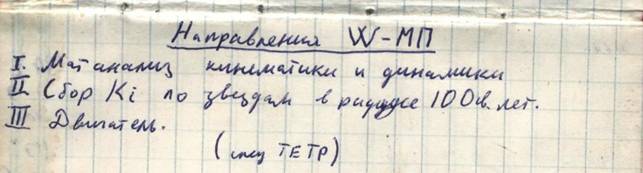 Направления W-МП
I. Матанализ кинематики и динамики
II Сбор Ki по звездам в радиусе 100 св. лет.
III Двигатель.
(спец ТЕТР)